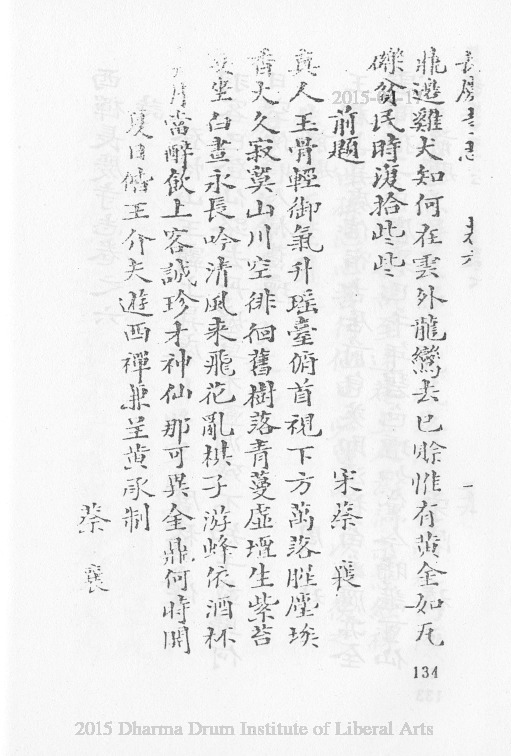 長慶寺志 卷六 一
鼎邊雞犬知何在雲外龍鸞去已賒惟有黃金如瓦
礫貧民時復拾些些
前題 宋蔡襄
真人玉骨輕御氣升瑤臺俯首視下方萬落腥塵埃
香火久寂莫山川空徘徊舊樹落青蔓虛壇生紫苔
坐白晝永長吟清風来飛花亂棋子游蜂依酒杯
月當醉飲上客誠珍才神仙那可異金鼎何時開
夏日偕王介夫遊西禪兼呈黃承制
蔡襄
134
2015 Dharma Drum Institute of Liberal Arts